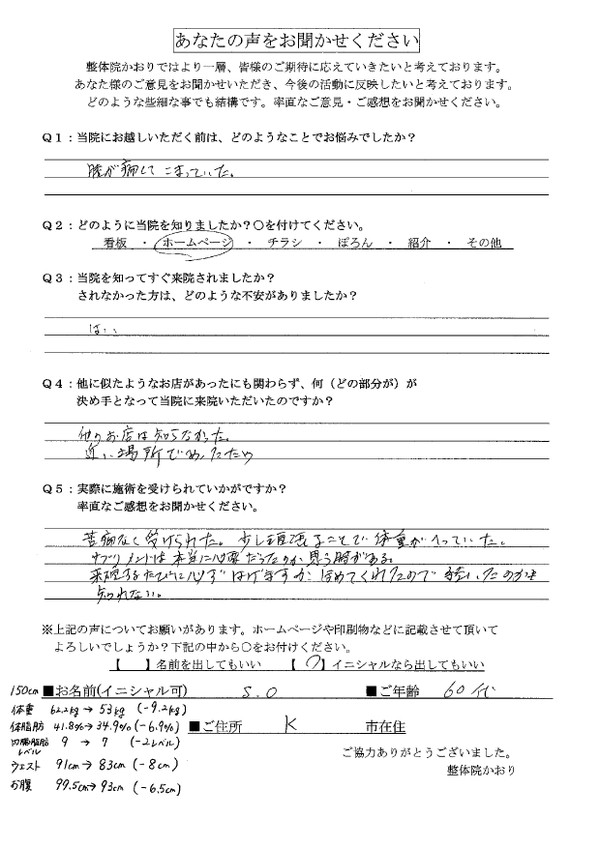 あなたの声をお聞かせください
整体院かおりではより一層、皆様のご期待に応えていきたいと考えております。
あなた様のご意見をお聞かせいただき、今後の活動に反映したいと考えております。
どのような些細な事でも結構です。率直なご意見・ご感想をお聞かせください。
Q1：当院にお越しいただく前は、どのようなことでお悩みでしたか？
膝が痛くて こまっていた。
Q2：どのように当院を知りましたか？〇を付けてください。
看板 ・ ホームページ ・ チラシ ・ ぽろん ・ 紹介 ・ その他
Q3：当院を知ってすぐ来院されましたか？
されなかった方は、どのような不安がありましたか？
はい
Q4：他に似たようなお店があったにも関わらず、何（どの部分が）が
決め手となって当院に来院いただいたのですか？
他のお店は知らなかった。
近い場所であったため
Q5：実際に施術を受けられていかがですか？
率直なご感想をお聞かせください。
苦痛なく受けられた。少し頑張ることで体重がへっていた。
サプリメントは本当に必要だったのか思う時がある。
来院するたびに必ずはげますか、ほめてくれたので続いたのかも
知れない。
※上記の声についてお願いがあります。ホームページや印刷物などに記載させて頂いて
よろしいでしょうか？下記の中から〇をお付けください。
【　】名前を出してもいい　【〇】イニシャルなら出してもいい
150cm ■お名前(イニシャル可) S.O ■ご年齢 60代
体重 62.2kg→53kg (-9.2kg)
体脂肪 41.8%→34.9% (-6.9%) ■ご住所 K 市在住
内臓脂肪レベル 9→7 (-2レベル)
ご協力ありがとうございました。
ウェスト 91cm→83cm (-8cm)
整体院かおり
お腹 99.5cm→93cm (-6.5cm)